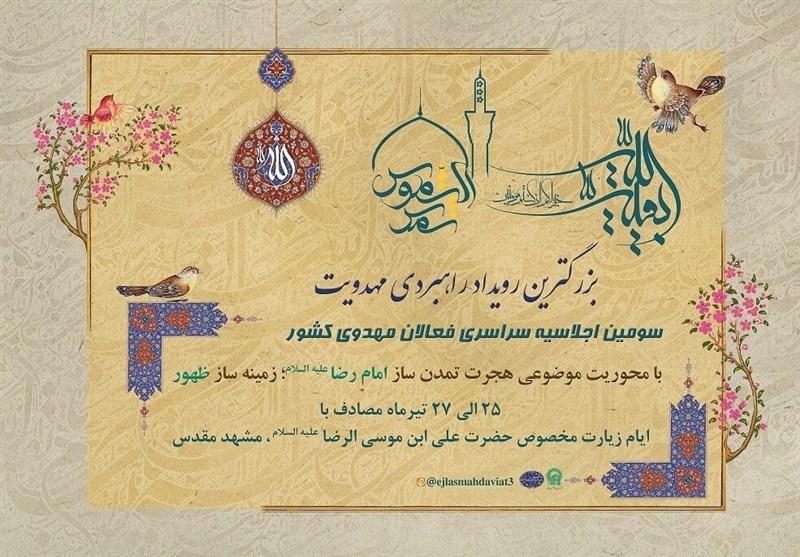 بقیة الله
بقیت الله خیر لکم ان کنتم مؤمنین
الله
بزرگترین رویداد راهبردی مهدویت
سومین اجلاسیه سراسری فعالان مهدوی کشور
با محوریت موضوعی هجرت تمدن ساز امام رضا علیه السلام؛ زمینه ساز ظهور
۲۵ الی ۲۷ تیرماه مصادف با
ایام زیارت مخصوص حضرت علی ابن موسی الرضا علیه السلام، مشهد مقدس
@ejlasmahdaviat3